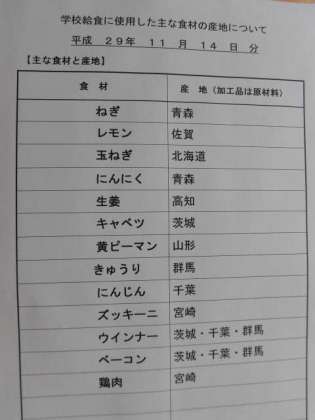 学校給食に使用した主な食材の産地について
平成 29年 11 月 14 日 分
【主な食材と産地】
食 材 産 地 (加工品は原材料)
ねぎ 青森
レモン 佐賀
玉ねぎ 北海道
にんにく 青森
生姜 高知
キャベツ 茨城
黄ピーマン 山形
きゅうり 群馬
にんじん 千葉
ズッキーニ 宮崎
ウインナー 茨城・千葉・群馬
ベーコン 茨城・千葉・群馬
鶏肉 宮崎